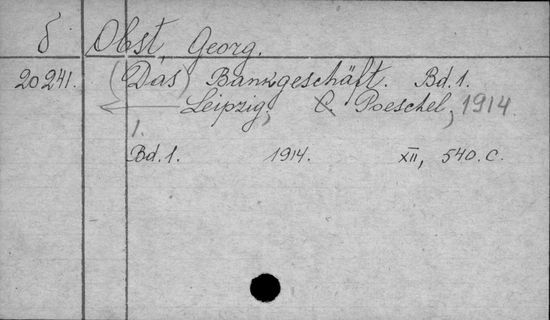 δ Obst Georg.
20241. (Das) Bankgeschäft. Bd. 1.
Leipzig, C. Poeschel, 1914
1.
Bd. 1. 1914. XII, 540. C.